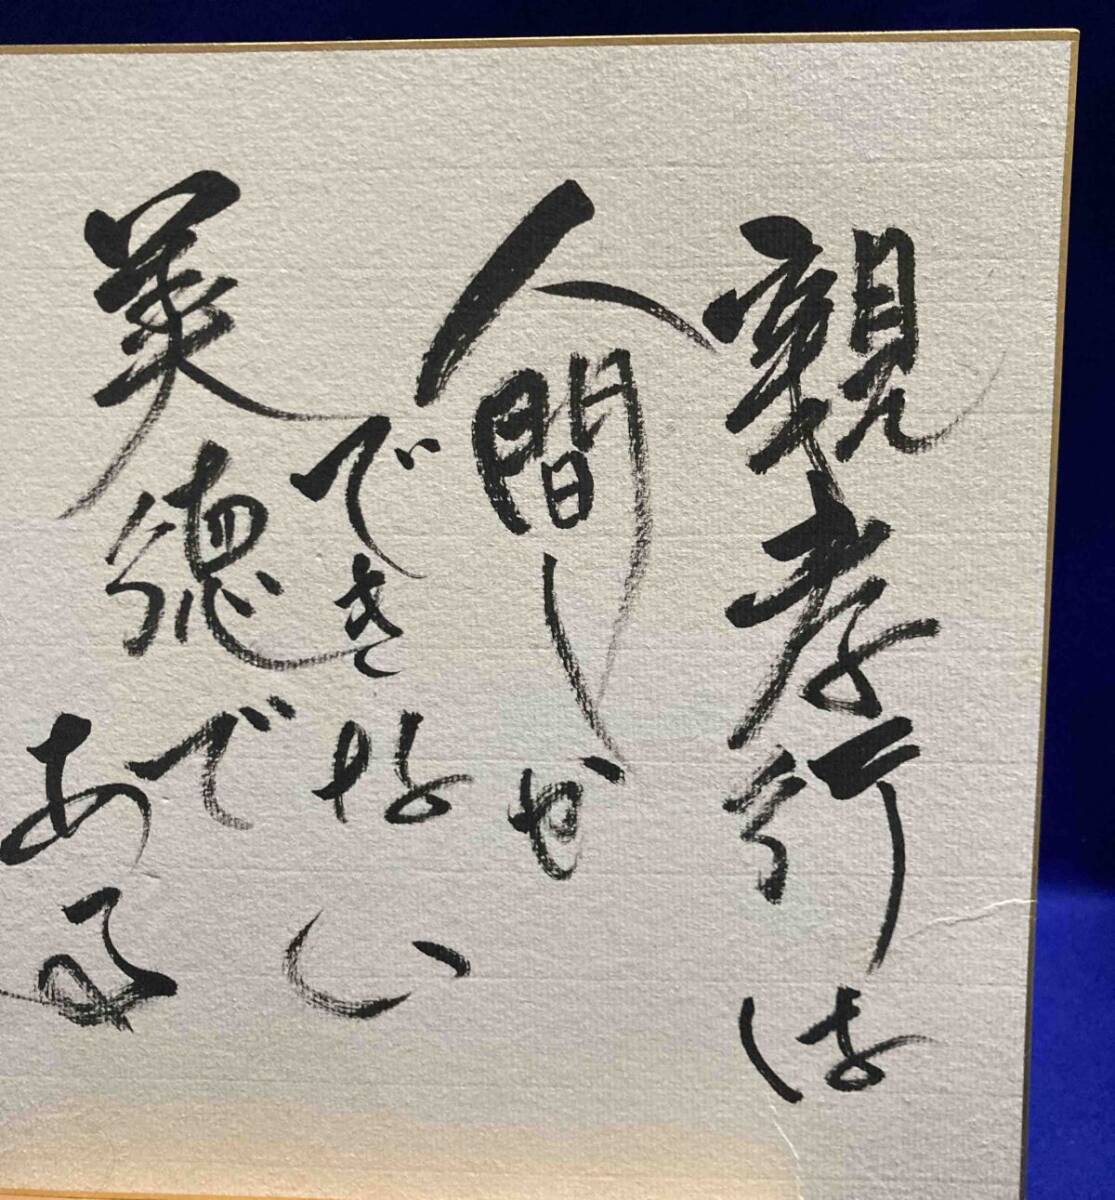 親孝行は
人間しか
できない
美徳で
ある